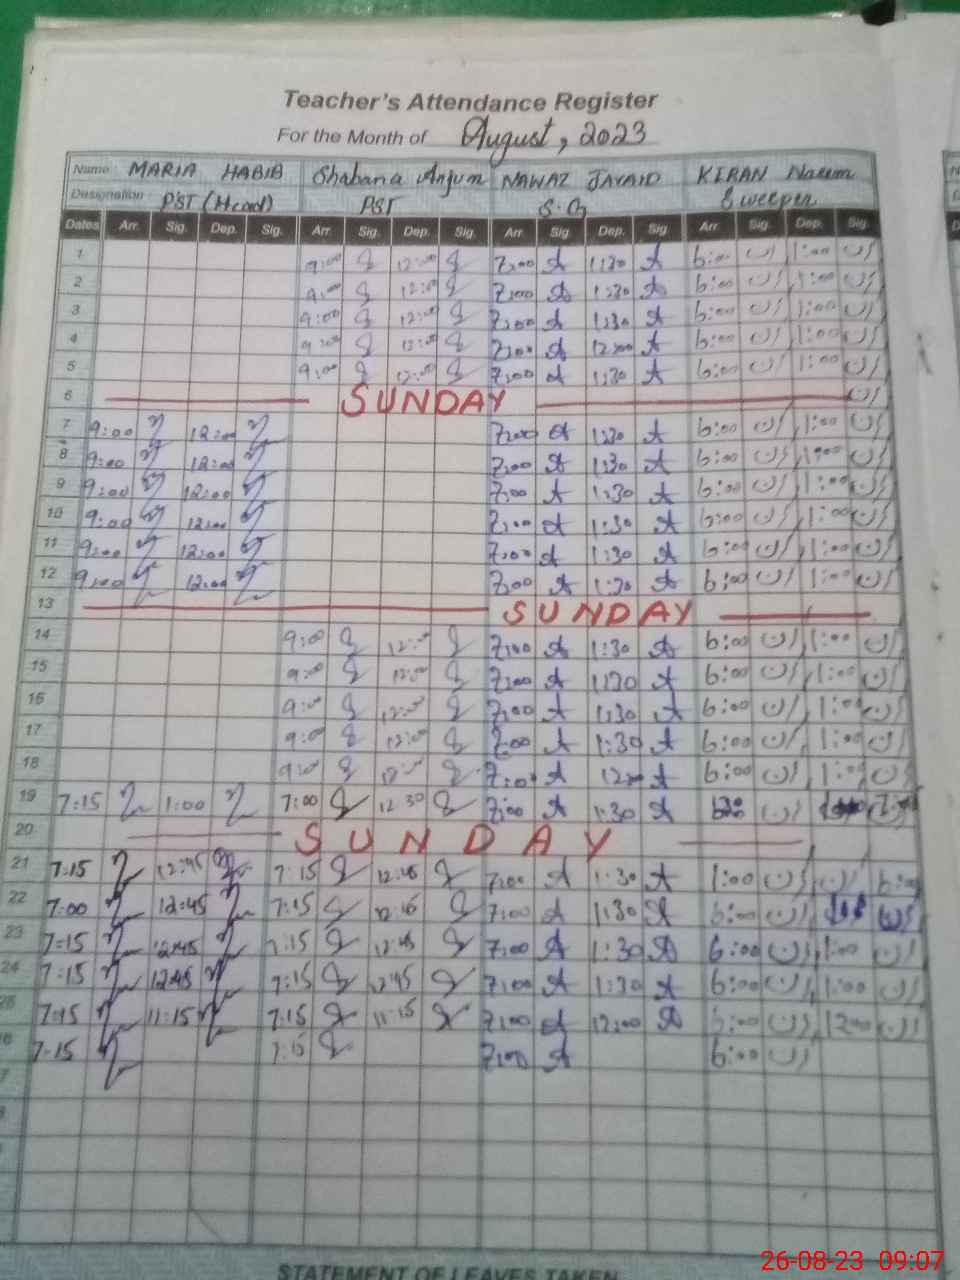 Teacher's Attendance Register
For the Month of August, 2023
Name MARIA HABIB Shabana Anjum NAWAZ JAVAID KIRAN Naeem
Designation PST (Head) PST S.G Sweeper
Dates Arr. Sig. Dep. Sig. Arr. Sig. Dep. Sig. Arr. Sig Dep. Sig. Arr. Sig. Dep. Sig.
1 9:00 12:00 7:00 1:30 6:00 1:00
2 9:00 12:00 7:00 1:30 6:00 1:00
3 9:00 12:00 7:00 1:30 6:00 1:00
4 9:00 12:00 7:00 12:00 6:00 1:00
5 9:00 12:00 7:00 1:30 6:00 1:00
6 SUNDAY
7 9:00 12:00 7:00 1:30 6:00 1:00
8 9:00 12:00 7:00 1:30 6:00 1:00
9 9:00 12:00 7:00 1:30 6:00 1:00
10 9:00 12:00 7:00 1:30 6:00 1:00
11 9:00 12:00 7:00 1:30 6:00 1:00
12 9:00 12:00 7:00 1:30 6:00 1:00
13 SUNDAY
14 9:00 12:00 7:00 1:30 6:00 1:00
15 9:00 12:00 7:00 1:30 6:00 1:00
16 9:00 12:00 7:00 1:30 6:00 1:00
17 9:00 12:00 7:00 1:30 6:00 1:00
18 9:00 12:00 7:00 12:00 6:00 1:00
19 7:15 1:00 7:00 12 30 7:00 1:30
20 SUNDAY
21 7:15 12:45 7:15 12:45 7:00 1:30 1:00 6:00
22 7:00 12:45 7:15 12:45 7:00 1:30 6:00
23 7:15 12:45 7:15 12:45 7:00 1:30 6:00 1:00
24 7:15 12:45 7:15 12:45 7:00 1:30 6:00 1:00
25 7:15 11:15 7:15 11:15 7:00 12:00 6:00 12:00
7:15 7:15 7:00 6:00
STATEMENT OF LEAVES TAKEN
26-08-23 09:07